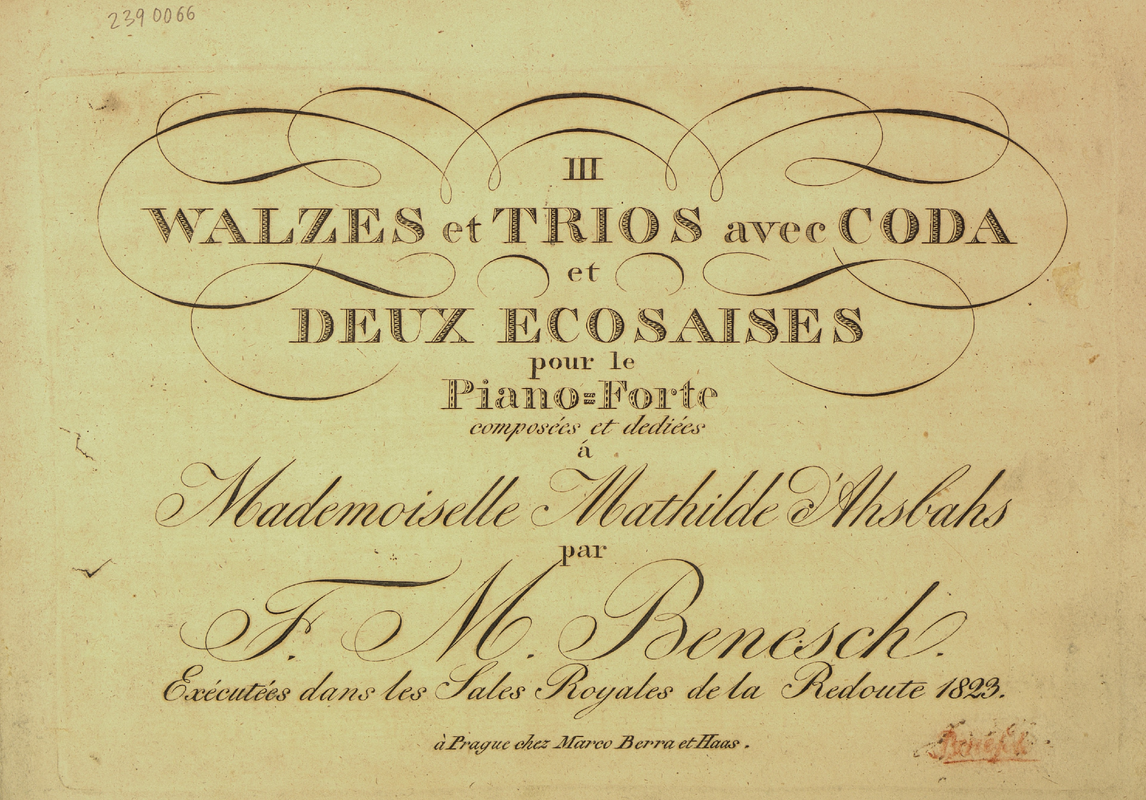 2390066
III
WALZES et TRIOS avec CODA
et
DEUX ECOSAISES
pour le
Piano=Forte
composées et dediées
á
Mademoiselle Mathilde d'Ahsbahs
par
F. M. Benesch.
Exécutées dans les Sales Royales de la Redoute 1823.
à Prague chez Marco Berra et Haas.